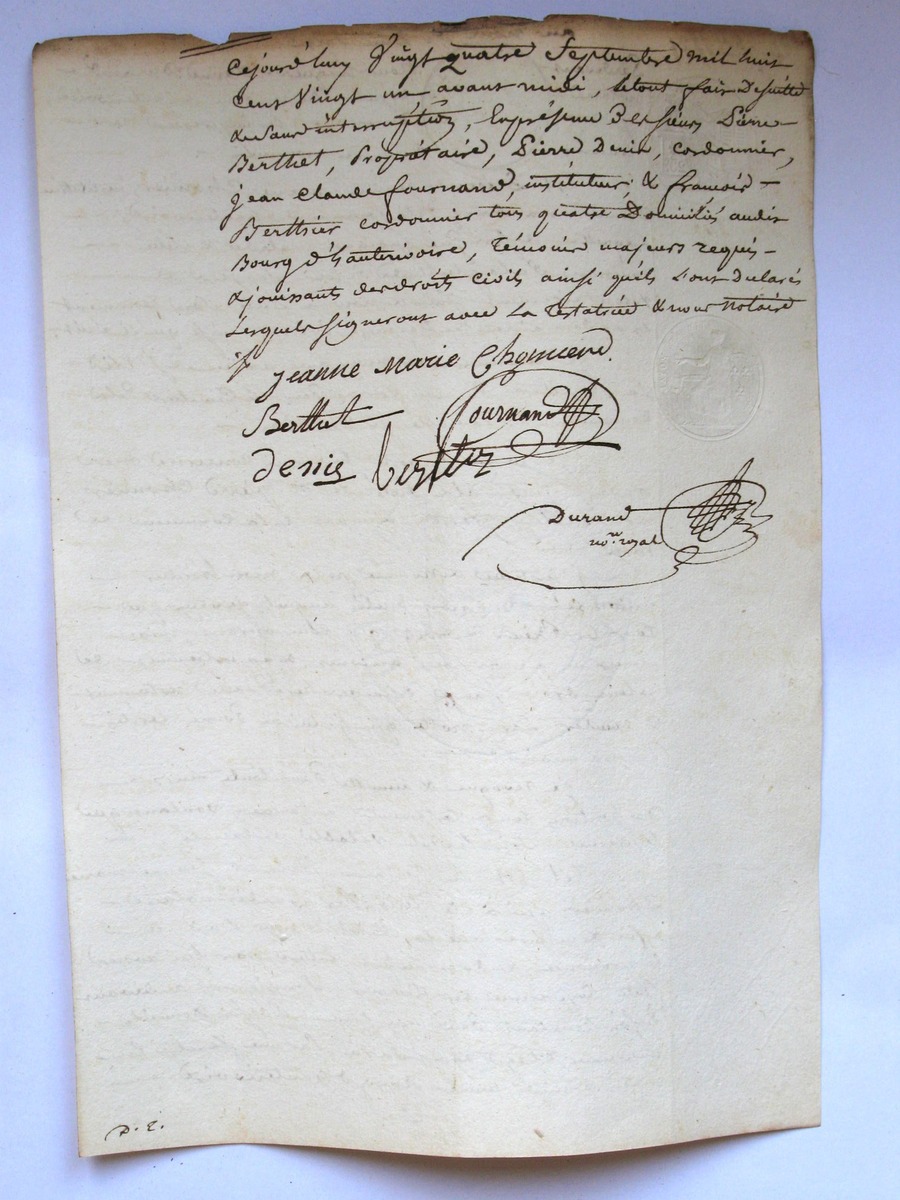 Cejourd'huy Vingt quatre Septembre mil huit
Cent Vingt un avant midi, le tout fait de suitte
& sans interruption, En présence des sieurs Pierre
Berthet, Propriétaire, Pierre Denis, cordonnier,
jean Claude fournand, instituteur, & francois
Berthier cordonnier tous quatre Domiciliés audit
Bourg d'hauterivoire, Témoins majeurs requis
& jouissants des droits civils ainsi qu'ils l'ont déclarés
Lesquels signeront avec La Testatrice & nous Notaire
Jeanne Marie
Berthet fournand
Denis berthier
Durand
no.re royal